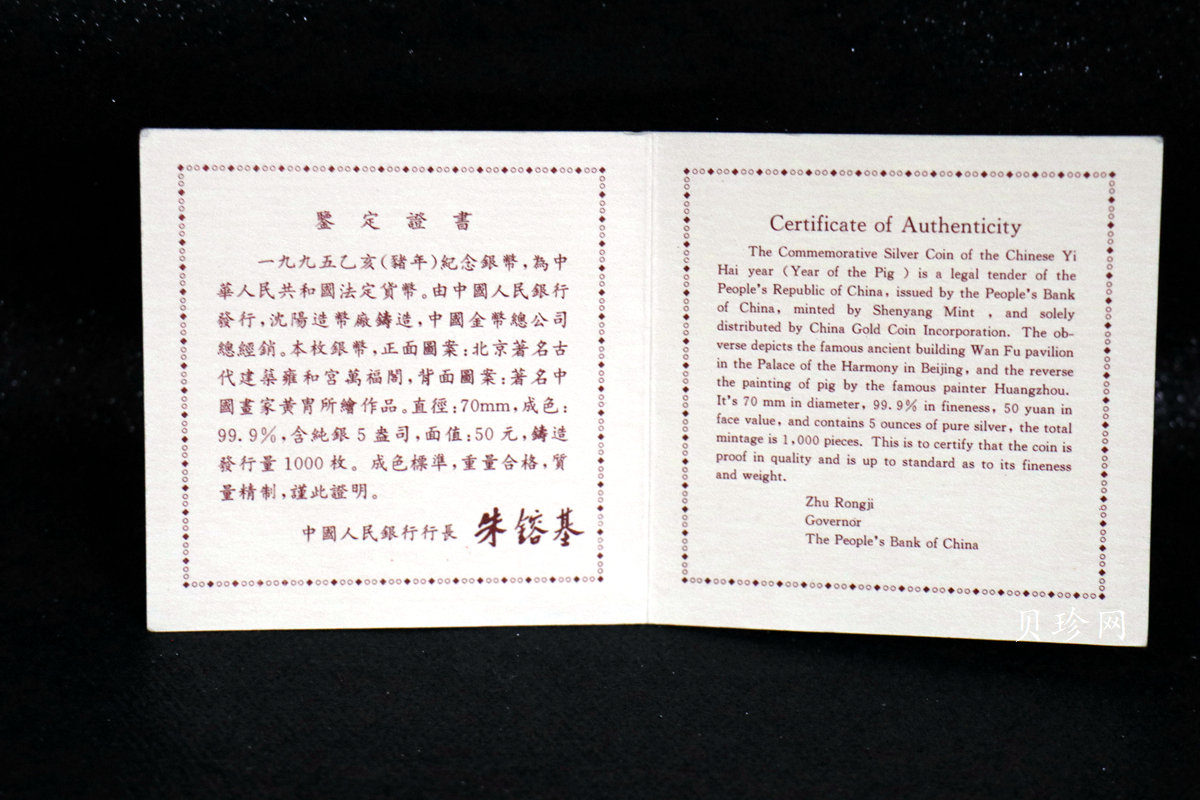 鑒定證書
一九九五乙亥(豬年)紀念銀幣,為中
華人民共和國法定貨幣。由中國人民銀行
發行,沈陽造幣廠鑄造,中國金幣總公司
總經銷。本枚銀幣,正面圖案:北京著名古
代建築雍和宮萬福閣,背面圖案:著名中
國畫家黃冑所繪作品。直徑:70mm,成色:
99.9%,含純銀5盎司,面值:50元,鑄造
發行量1000枚。成色標準,重量合格,質
量精制,謹此證明。
中國人民銀行行長 朱鎔基
Certificate of Authenticity
The Commemorative Silver Coin of the Chinese Yi
Hai year (Year of the Pig ) is a legal tender of the
People's Republic of China, issued by the People's Bank
of China, minted by Shenyang Mint , and solely
distributed by China Gold Coin Incorporation. The ob-
verse depicts the famous ancient building Wan Fu pavilion
in the Palace of the Harmony in Beijing, and the reverse
the painting of pig by the famous painter Huangzhou.
It's 70 mm in diameter, 99.9% in fineness, 50 yuan in
face value, and contains 5 ounces of pure silver, the total
mintage is 1,000 pieces. This is to certify that the coin is
proof in quality and is up to standard as to its fineness
and weight.
Zhu Rongji
Governor
The People's Bank of China
贝珍网